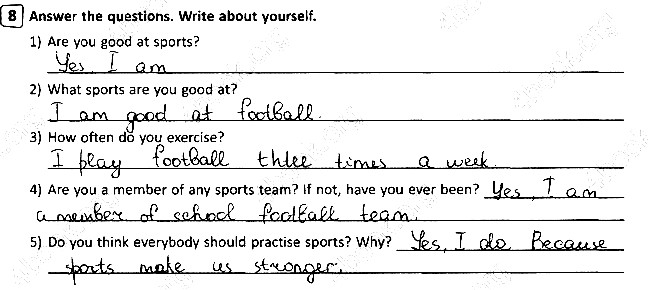 8 Answer the questions. Write about yourself.
1) Are you good at sports?
Yes, I am
2) What sports are you good at?
I am good at football.
3) How often do you exercise?
I play football three times a week.
4) Are you a member of any sports team? If not, have you ever been? Yes, I am
a member of school football team.
5) Do you think everybody should practise sports? Why? Yes, I do. Because
sports make us stronger.